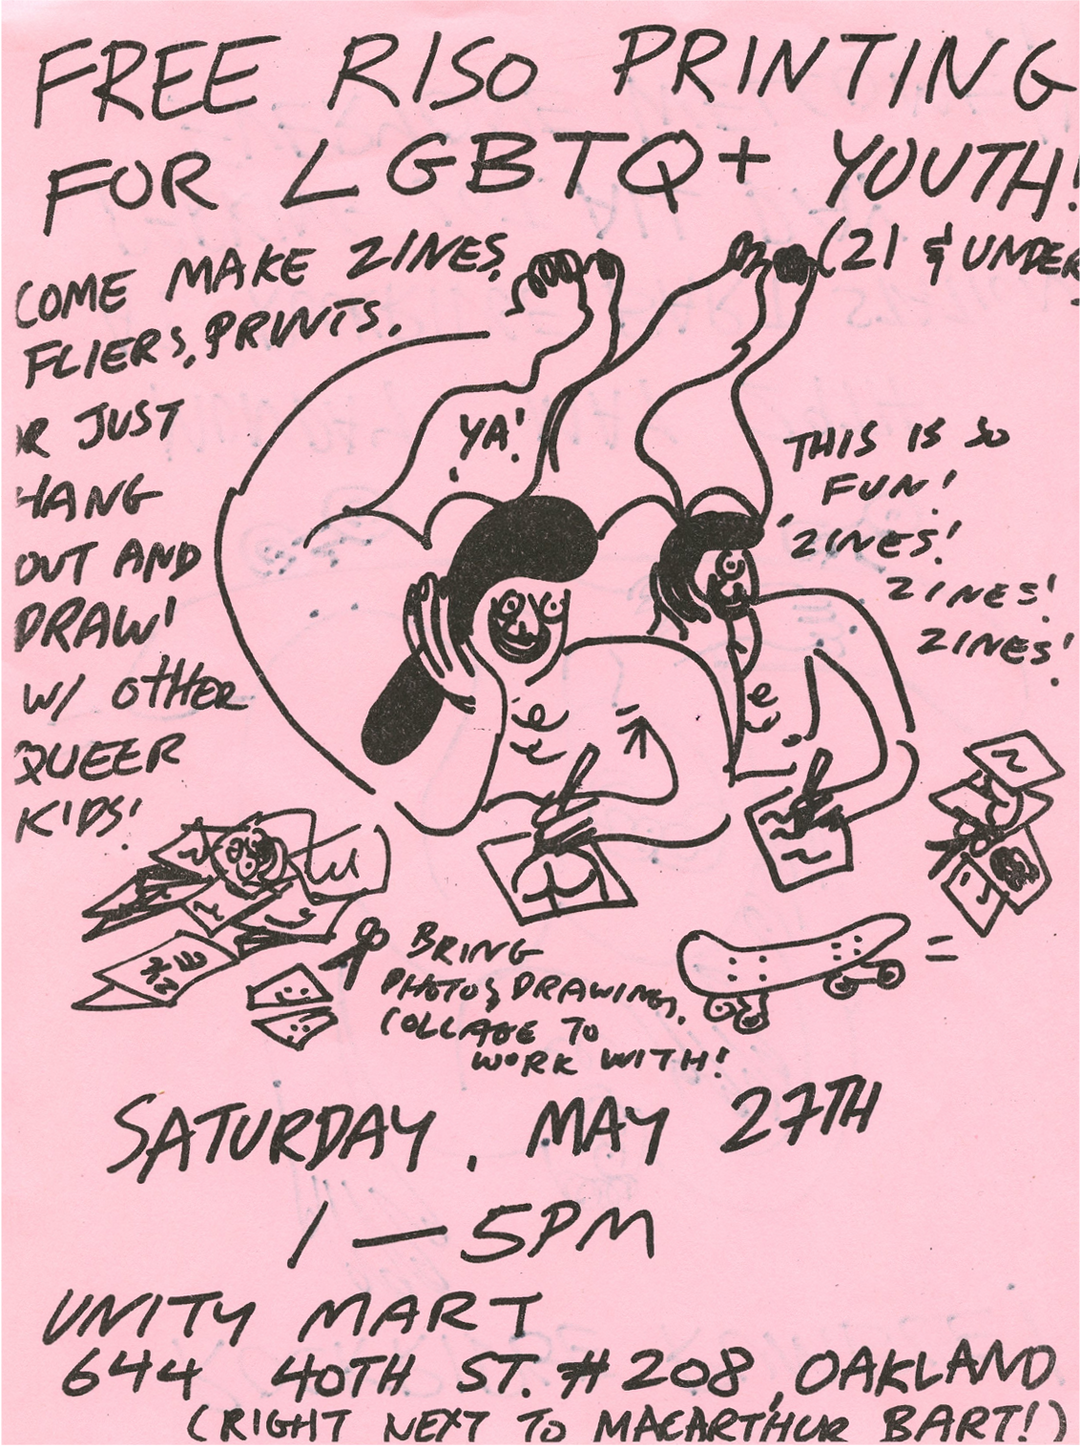 FREE RISO PRINTING
FOR LGBTQ+ YOUTH!
(21 & UNDER
COME MAKE ZINES,
FLIERS, PRINTS,
OR JUST
HANG
OUT AND
DRAW!
W/ OTHER
QUEER
KIDS!
YA!
THIS IS SO
FUN!
ZINES!
ZINES!
ZINES!
BRING
PHOTOS, DRAWINGS,
COLLAGE TO
WORK WITH!
=
SATURDAY, MAY 27TH
1—5PM
UNITY MART
644 40TH ST. #208, OAKLAND
(RIGHT NEXT TO MACARTHUR BART!)